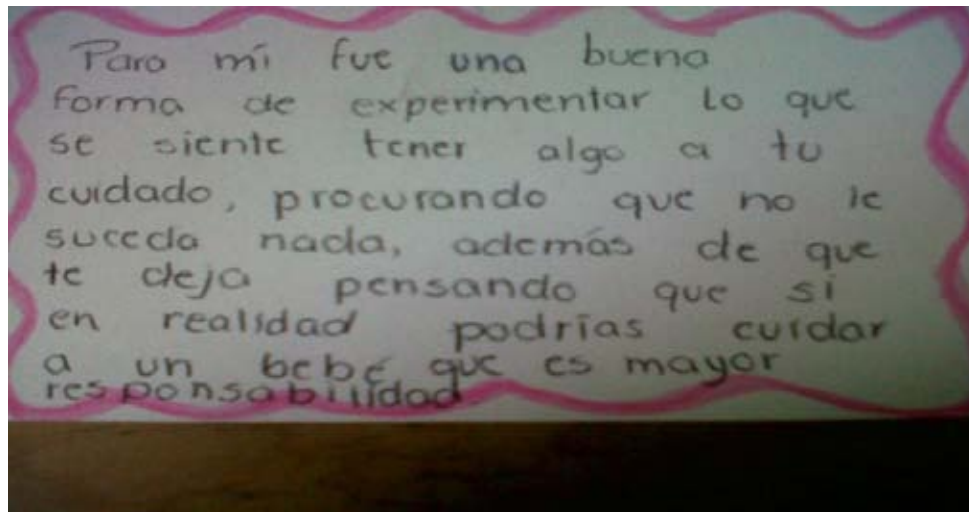 Para mí fue una buena
forma de experimentar lo que
se siente tener algo a tu
cuidado, procurando que no le
suceda nada, además de que
te deja pensando que si
en realidad podrías cuidar
a un bebé que es mayor
responsabilidad.